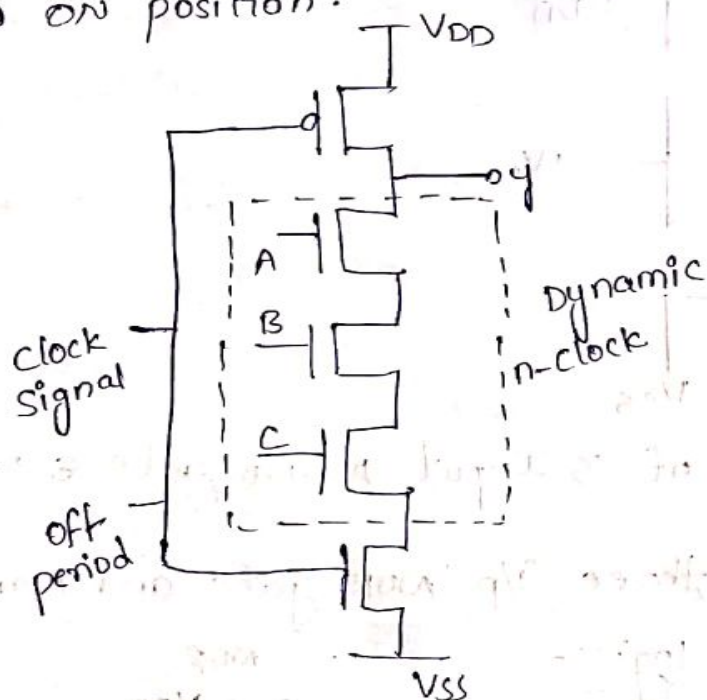 ON position.
VDD
y
A
B
C
Dynamic
n-clock
Clock
Signal
Off
period
VSS